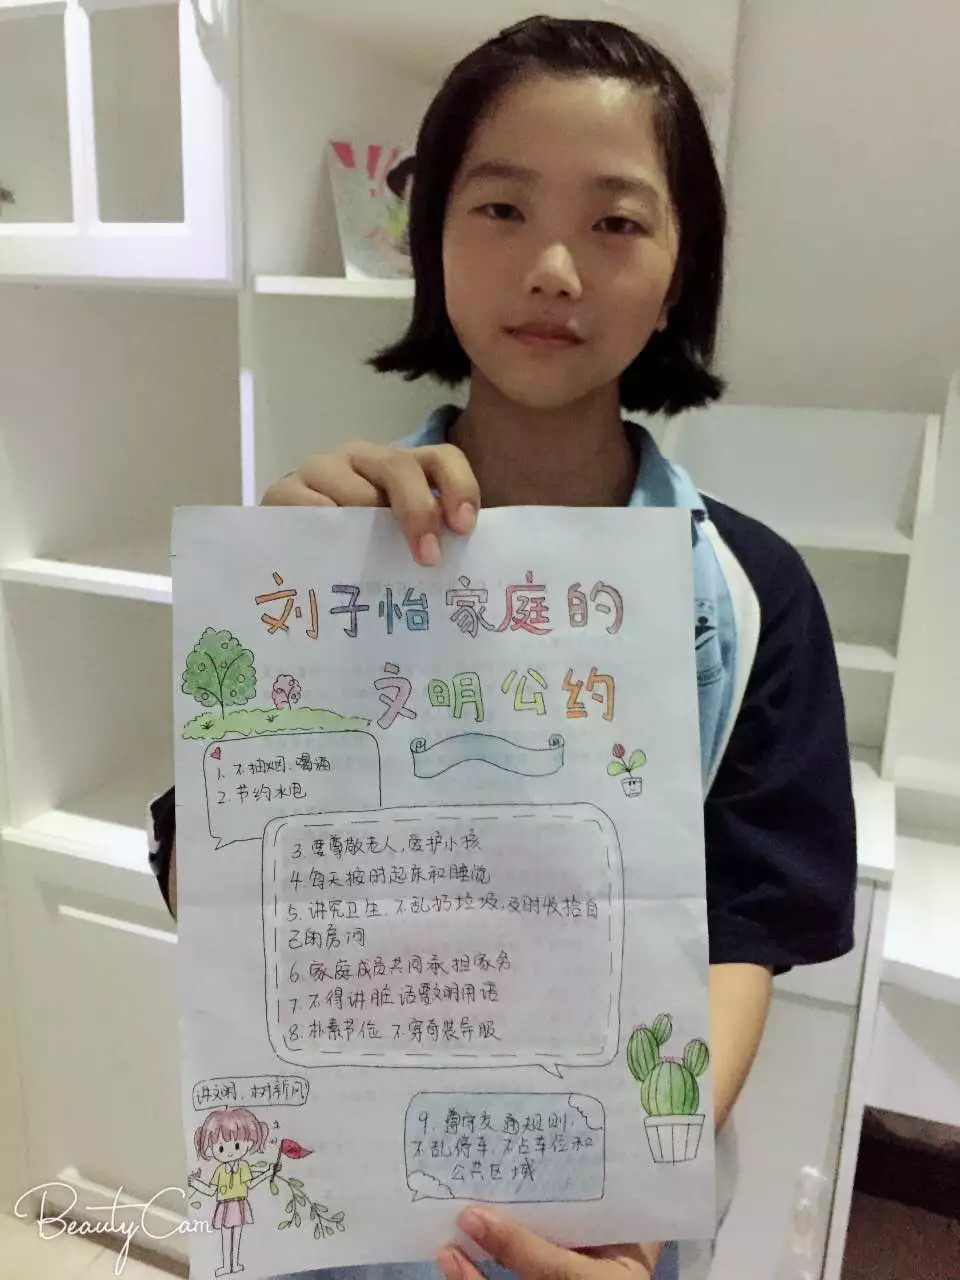 刘子怡家庭的
文明公约
1. 不抽烟、喝酒
2. 节约水电
3. 要尊敬老人,爱护小孩
4. 每天按时起床和睡觉
5. 讲究卫生、不乱扔垃圾,及时收拾自
己的房间
6. 家庭成员共同承担家务
7. 不得讲脏话要文明用语
8. 朴素节俭 不穿奇装异服
讲文明、树新风
9. 遵守交通规则,
不乱停车、不占车位和
公共区域
BeautyCam